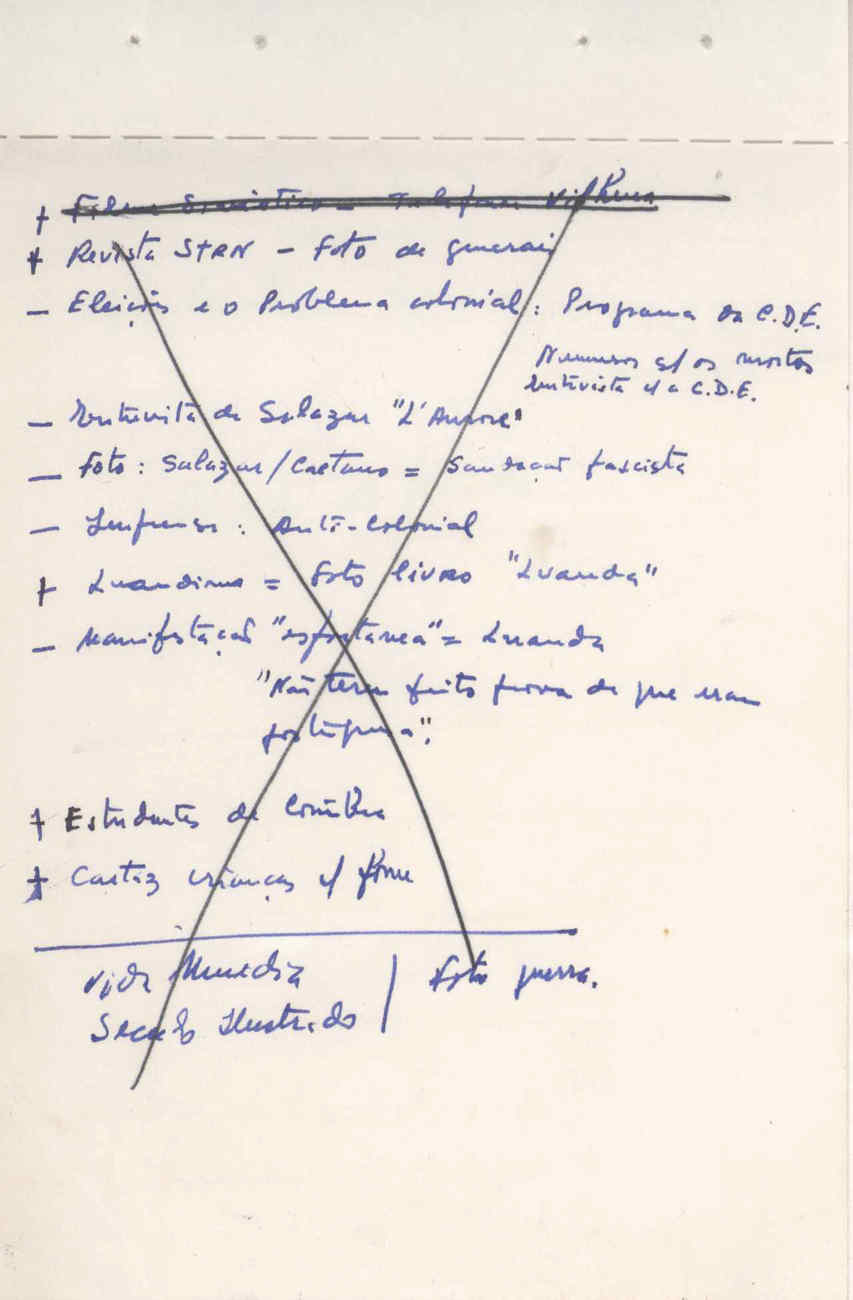 + Revista STRN - Foto de generais
- Eleições e o Problema colonial: Programa da C.D.E.
Numeros s/ os mortos
Entrevista c/ a C.D.E.
- Entrevista de Salazar "L'Aurore"
- Foto: Salazar/Caetano = Saudação fascista
- Imprensa: Anti-Colonial
+ Luandino = foto livro "Luanda"
- Manifestação "espontanea" = Luanda
"Não tem feito prova de que eram
portugueses".
+ Estudantes de Coimbra
+ Cartaz crianças c/ fome
Vida Mundial | Foto guerra.
Seculo Ilustrado